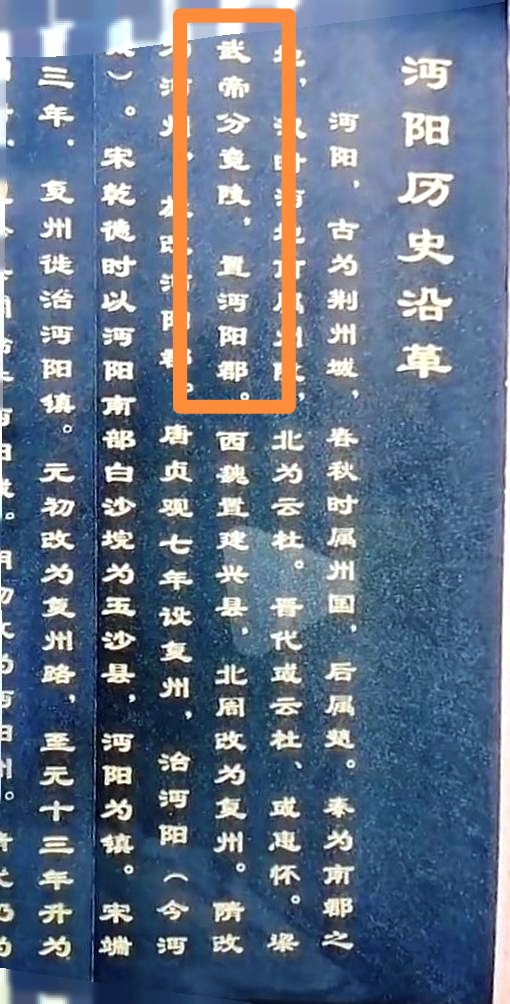 沔阳历史沿革
沔阳，古为荆州域，春秋时属州国，后属楚。秦为南郡之
地，汉时沔地前属州陵，北为云杜。晋代或云杜、或惠怀。梁
武帝分竟陵，置沔阳郡。西魏置建兴县，北周改为复州。隋改
为沔州，放改沔阳郡。唐贞观七年设复州，治沔阳（今沔
城）。宋乾德时以沔阳南部白沙垸为玉沙县，沔阳为镇。宋端
三年，复州徙治沔阳镇。元初改为复州路，至元十三年升为